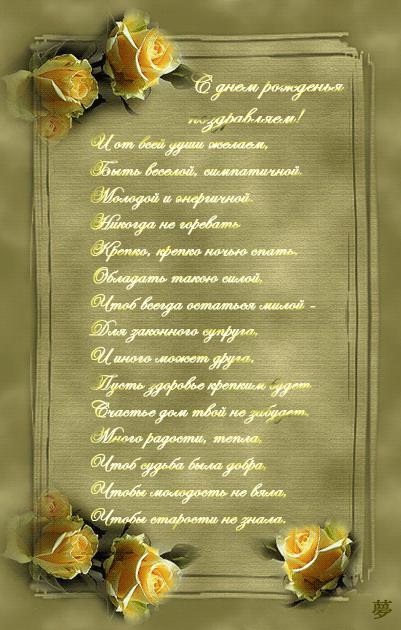 С днем рожденья
поздравляем!
И от всей души желаем,
Быть веселой, симпатичной.
Молодой и энергичной.
Никогда не горевать
Крепко, крепко ночью спать.
Обладать такою силой,
Чтоб всегда остаться милой -
Для законного супруга,
И иного может друга.
Пусть здоровье крепким будет
Счастье дом твой не забудет.
Много радости, тепла,
Чтоб судьба была добра,
Чтобы молодость не вяла,
Чтобы старости не знала.
夢